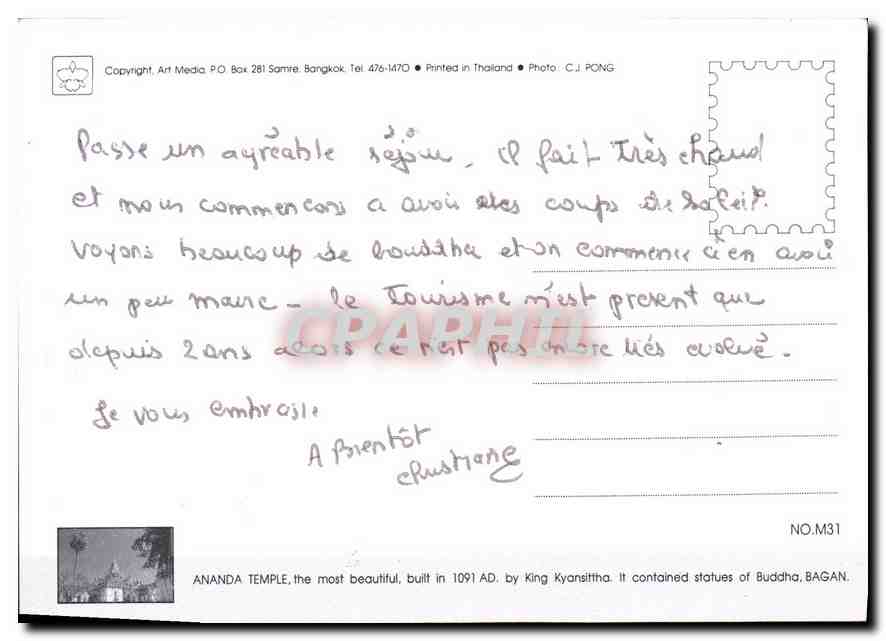 Copyright, Art Media, P.O. Box 281 Samre, Bangkok, Tel. 476-1470 ● Printed in Thailand ● Photo : C.J. PONG
Passe un agréable séjour. il fait très chaud
et nous commencons a avoir des coups de soleil.
Voyons beaucoup de bouddha et on commence à en avoir
un peu marre - le Tourisme n'est present que
depuis 2 ans alors ce n'est pas encore très evolué.
Je vous embrasse
A Bientôt
Christiane
CPAPHIL
NO.M31
ANANDA TEMPLE, the most beautiful, built in 1091 AD. by King Kyansittha. It contained statues of Buddha, BAGAN.